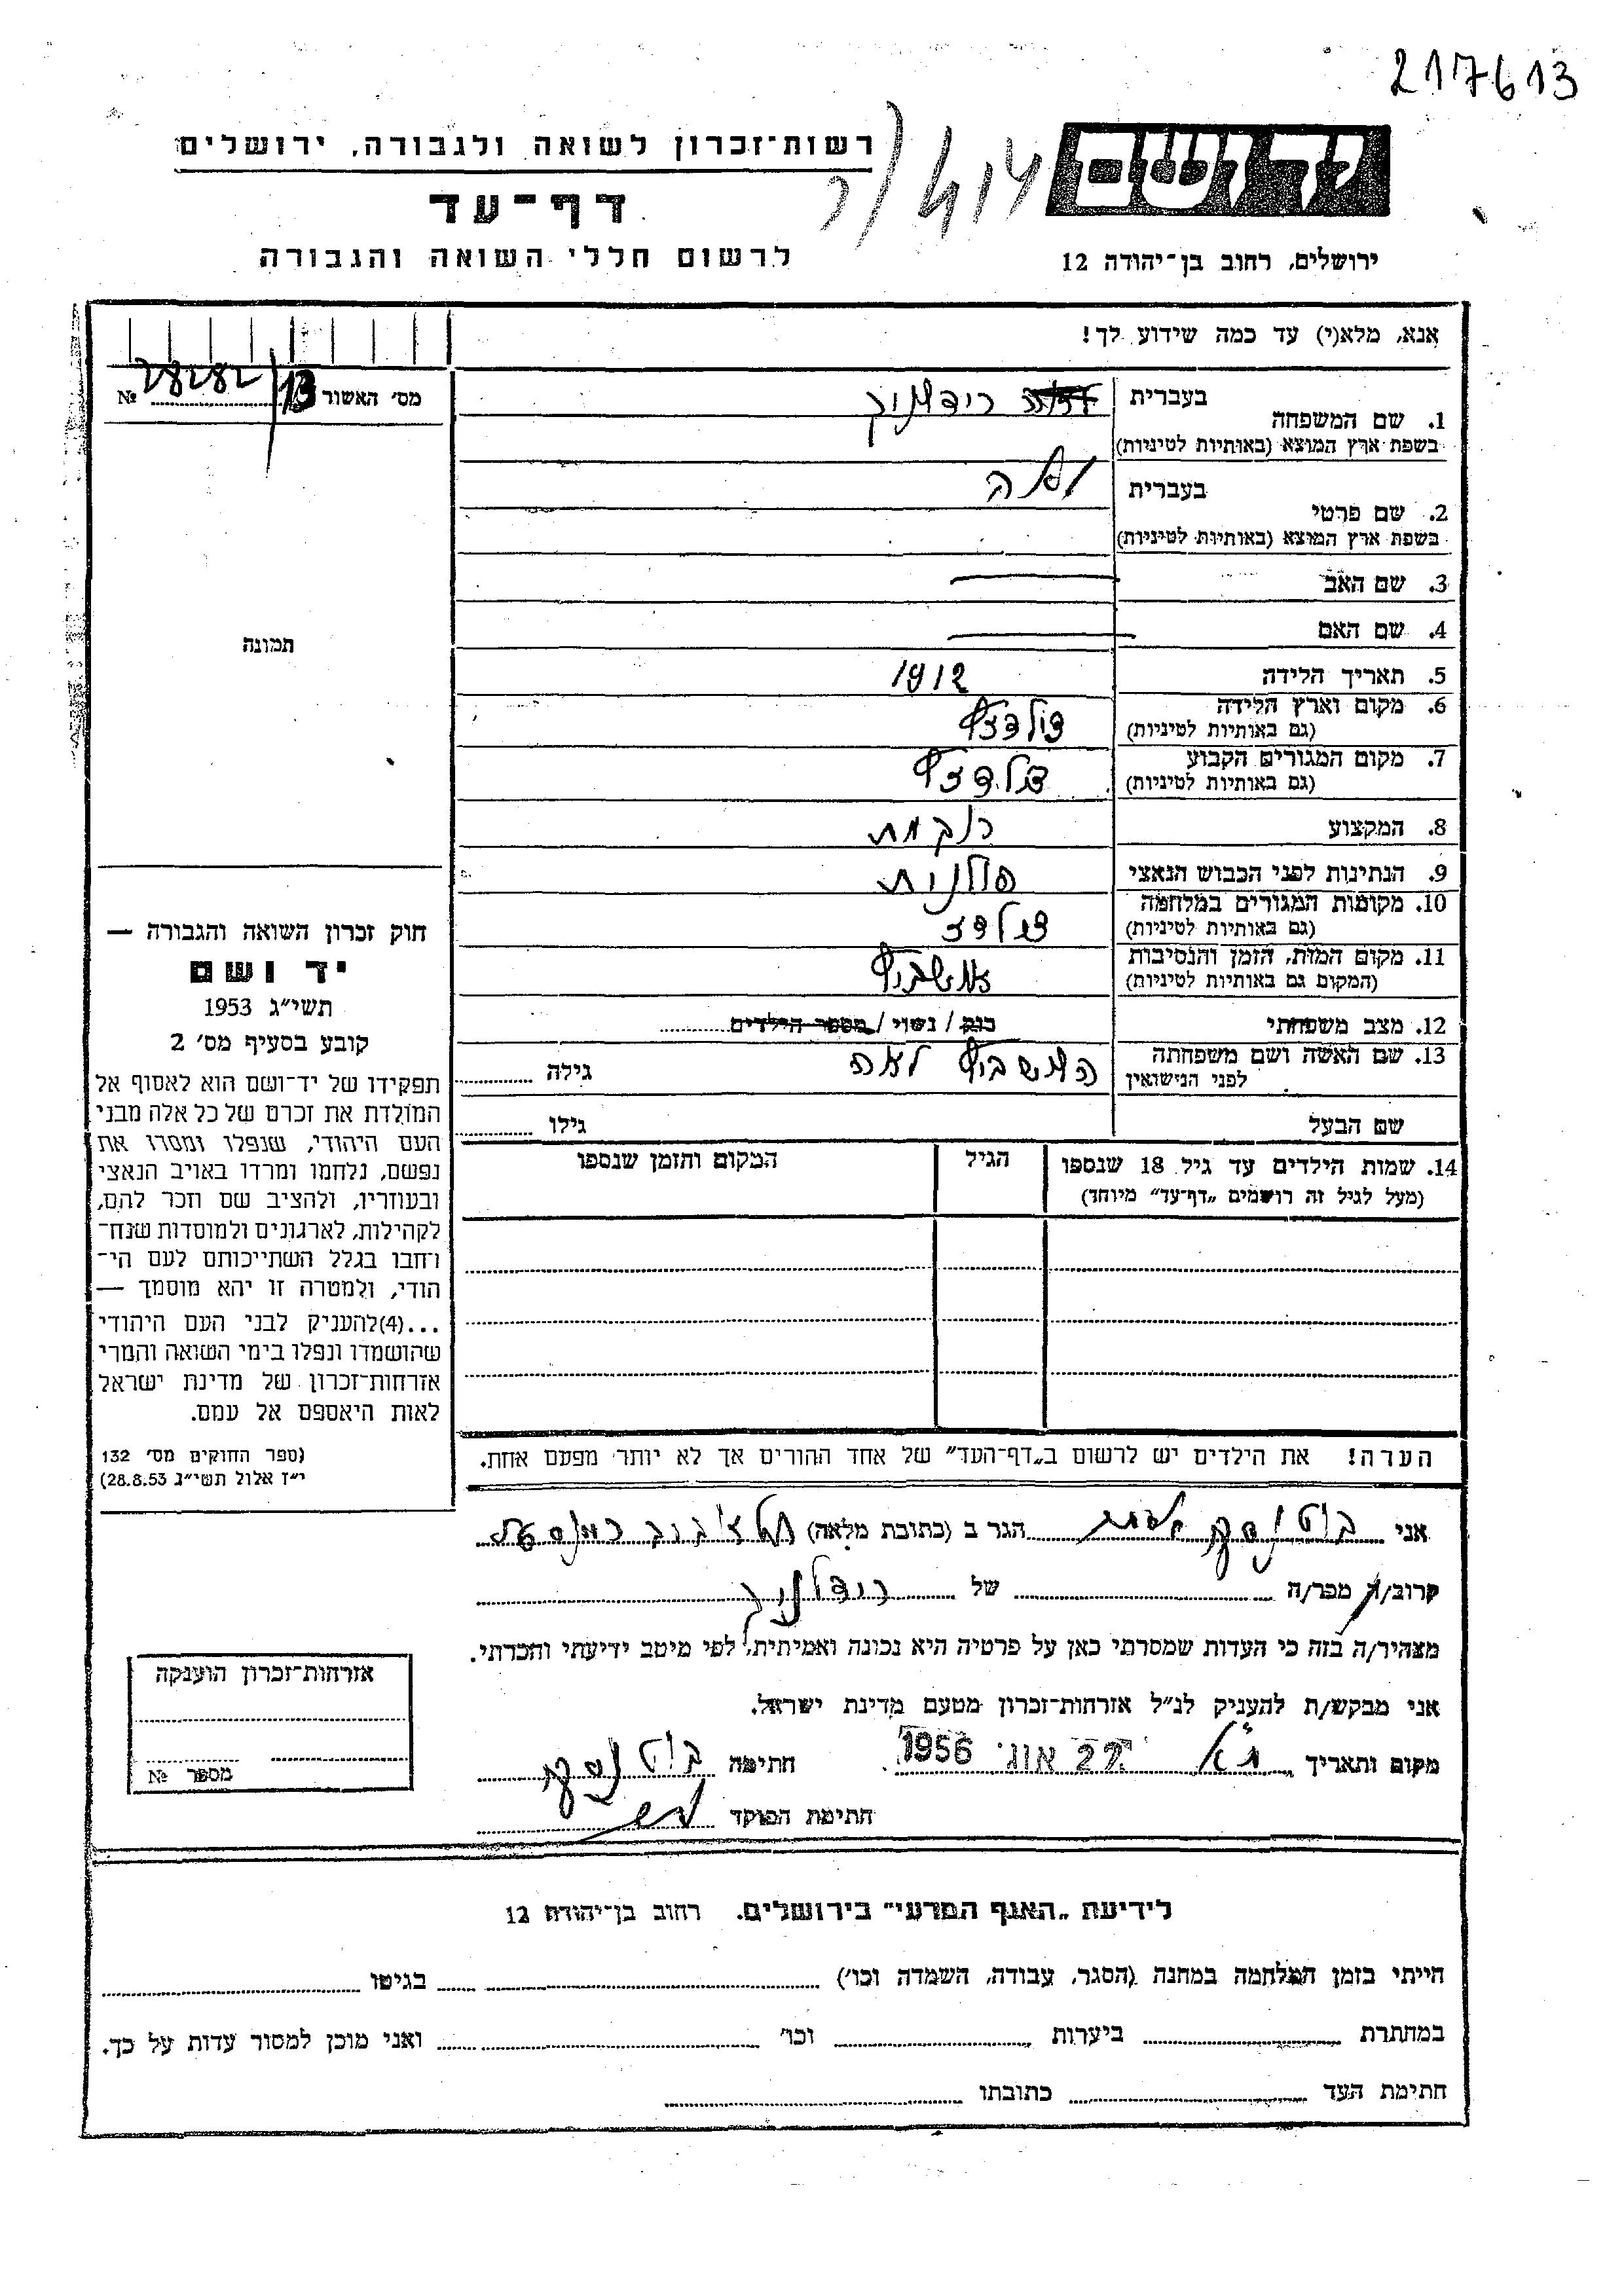 217613
רשות־זכרון לשואה ולגבורה, ירושלים
דף־עד
לרשום חללי השואה והגבורה
יד ושם
ירושלים, רחוב בן־יהודה 12
אנא, מלא(י) עד כמה שידוע לך!
מס׳ האשור 13 28282 №
תמונה
חוק זכרון השואה והגבורה —
יד ושם
תשי״ג 1953
קובע בסעיף מס׳ 2
תפקידו של יד־ושם הוא לאסוף אל
המולדת את זכרם של כל אלה מבני
העם היהודי, שנפלו ומסרו את
נפשם, נלחמו ומרדו באויב הנאצי
ובעוזריו, ולהציב שם וזכר להם,
לקהילות, לארגונים ולמוסדות שנח־
רחבו בגלל השתייכותם לעם הי־
הודי, ולמטרה זו יהא מוסמך —
...(4)להעניק לבני העם היהודי
שהושמדו ונפלו בימי השואה והמרי
אזרחות־זכרון של מדינת ישראל
לאות היאספם אל עמם.
(ספר החוקים מס׳ 132
י״ז אלול תשי״ג 28.8.53)
1. שם המשפחה
בעברית
בשפת ארץ המוצא (באותיות לטיניות)
2. שם פרטי
בעברית
בשפת ארץ המוצא (באותיות לטיניות)
3. שם האב
4. שם האם
5. תאריך הלידה 1912
6. מקום וארץ הלידה
(גם באותיות לטיניות)
7. מקום המגורים הקבוע
(גם באותיות לטיניות)
8. המקצוע רוקחת
9. הנתינות לפני הכבוש הנאצי פולנית
10. מקומות המגורים במלחמה
(גם באותיות לטיניות)
11. מקום המות, הזמן והנסיבות אושביץ
(המקום גם באותיות לטיניות)
12. מצב משפחתי רוק / נשוי / מספר הילדים
13. שם האשה ושם משפחתה לאה גילה
לפני הנישואין
שם הבעל גילו
14. שמות הילדים עד גיל 18 שנספו הגיל המקום והזמן שנספו
(מעל לגיל זה רושמים „דף־עד״ מיוחד)
הערה! את הילדים יש לרשום ב„דף־העד״ של אחד ההורים אך לא יותר מפעם אחת.
אני הגר ב (כתובת מלאה)
קרוב/ה מכר/ה של
מצהיר/ה בזה כי העדות שמסרתי כאן על פרטיה היא נכונה ואמיתית, לפי מיטב ידיעתי והכרתי.
אני מבקש/ת להעניק לנ״ל אזרחות־זכרון מטעם מדינת ישראל.
מקום ותאריך 22 אוג׳ 1956 חתימה
חתימת הפוקד
אזרחות־זכרון הוענקה
מספר №
לידיעת „האגף המדעי״ בירושלים. רחוב בן־יהודה 12
הייתי בזמן המלחמה במחנה (הסגר, עבודה, השמדה וכו׳) בגיטו
במחתרת ביערות וכו׳ ואני מוכן למסור עדות על כך.
חתימת העד כתובתו